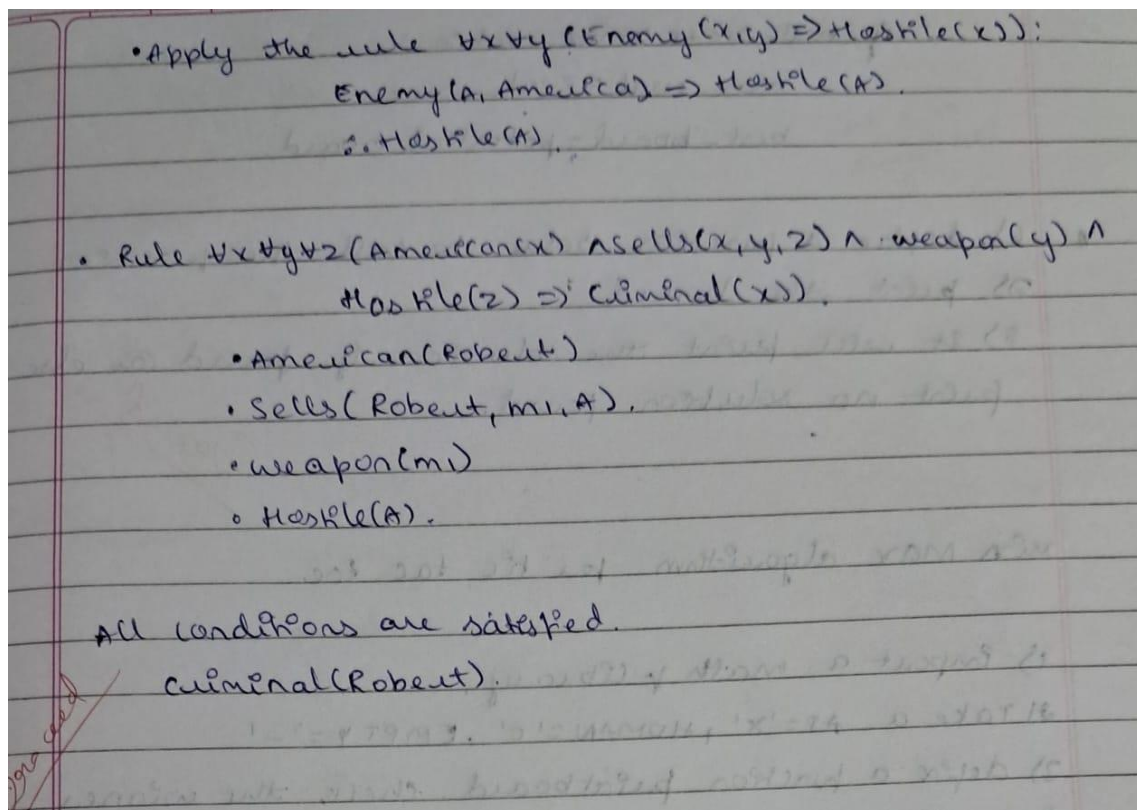 • Apply the rule ∀x∀y (Enemy(x,y) => Hostile(x)):
Enemy(A, America) => Hostile(A).
∴ Hostile(A).
• Rule ∀x∀y∀z (American(x) ∧ sells(x,y,z) ∧ weapon(y) ∧
Hostile(z) => Criminal(x)).
• American(Robert)
• Sells(Robert, m1, A).
• weapon(m1)
• Hostile(A).
All conditions are satisfied.
Criminal(Robert).